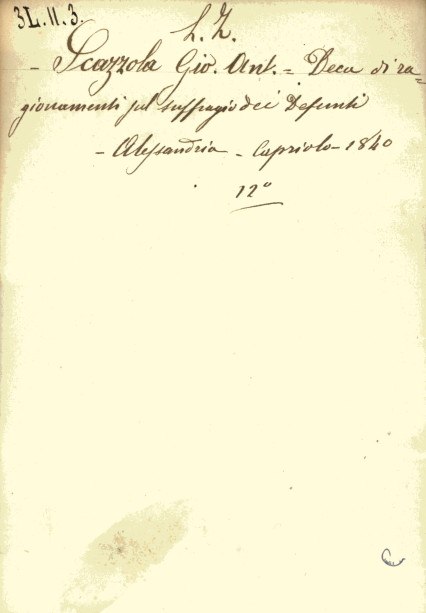 3L. 11. 3.
L. Z.
- Scazzola Gio. Ant. = Deca di ra=
gionamenti sul suffragio dei Defunti
- Alessandria - Capriolo - 1840
12°
C